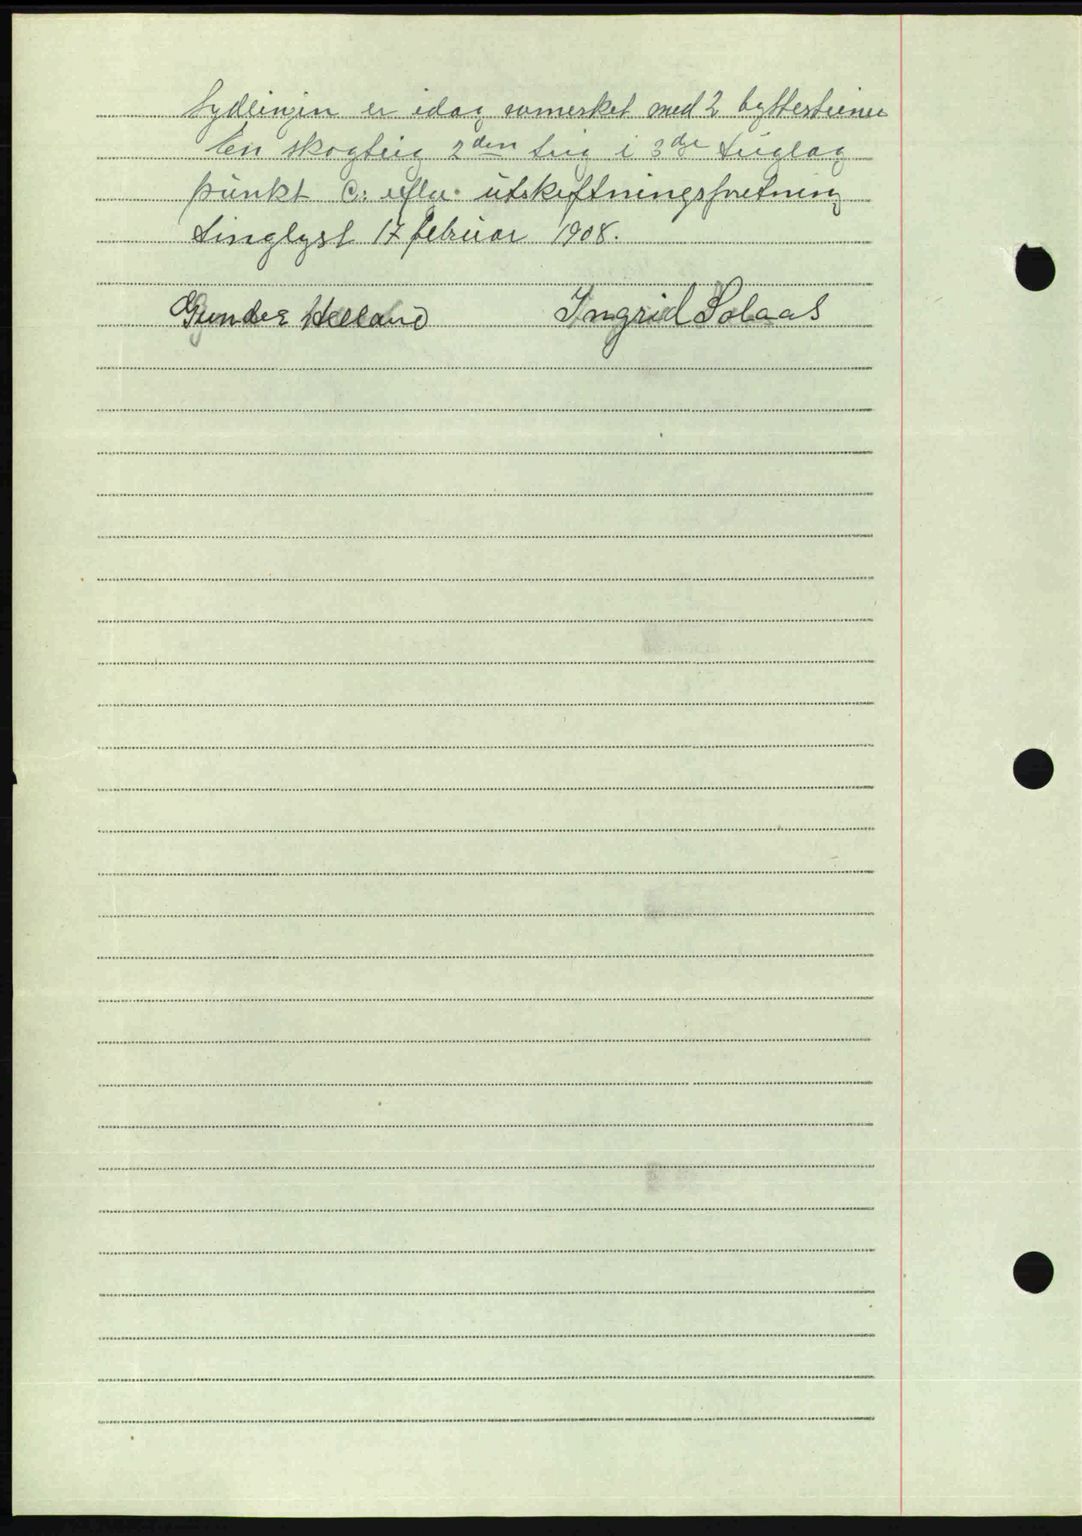 Sydlinjin er idag avmerket med 2 byttesteiner
En skogteig 2den teig i 3dje teiglag
punkt C: efter utskiftningsforetning
tinglyst 17 februar 1908.
Gunder Helland Ingrid Solaas